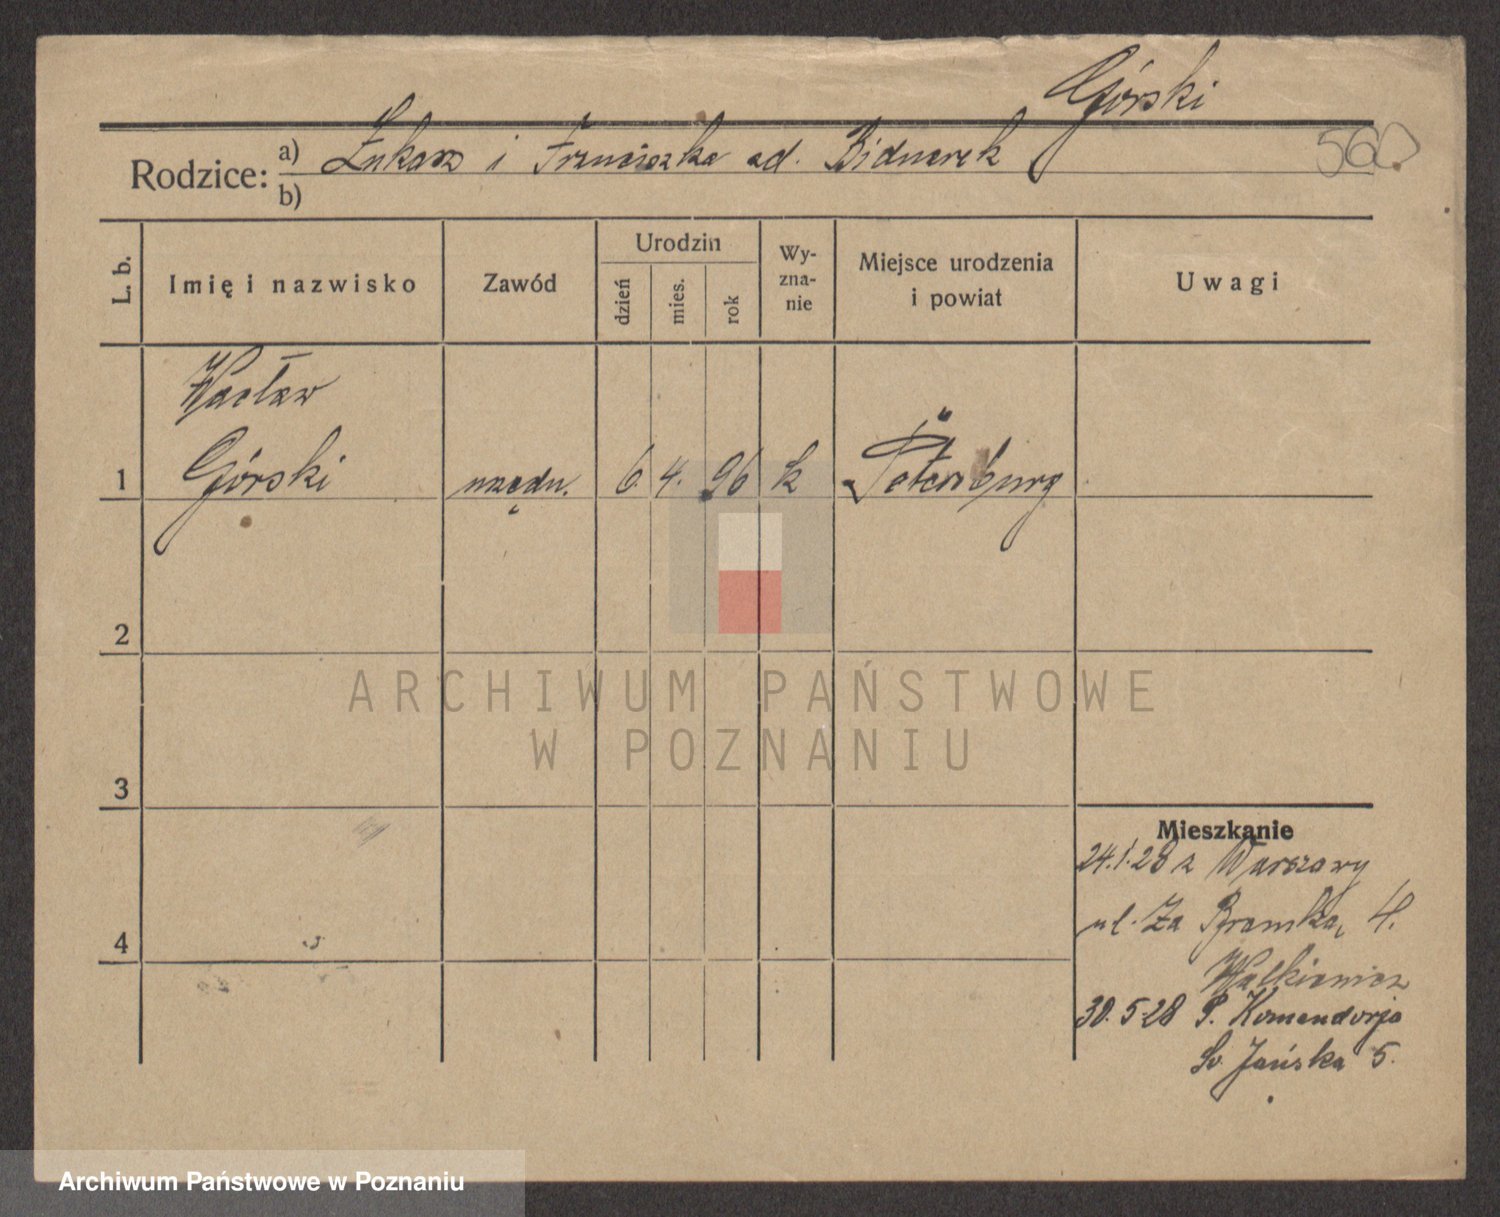 Górski
Rodzice: a) Łukasz i Franciszka zd. Bidnarek
b)
560
L. b.
Imię i nazwisko
Zawód
Urodzin
dzień
mies.
rok
Wy-
zna-
nie
Miejsce urodzenia
i powiat
Uwagi
Wacław
1 Górski urzędn. 6. 4. 96 k Petersburg
2
ARCHIWUM PAŃSTWOWE
W POZNANIU
3
Mieszkanie
24.1.28 z Warszawy
ul. Za Bramką, 4.
30.5.28 P. Komandorja
Św. Jańska 5.
4
Archiwum Państwowe w Poznaniu